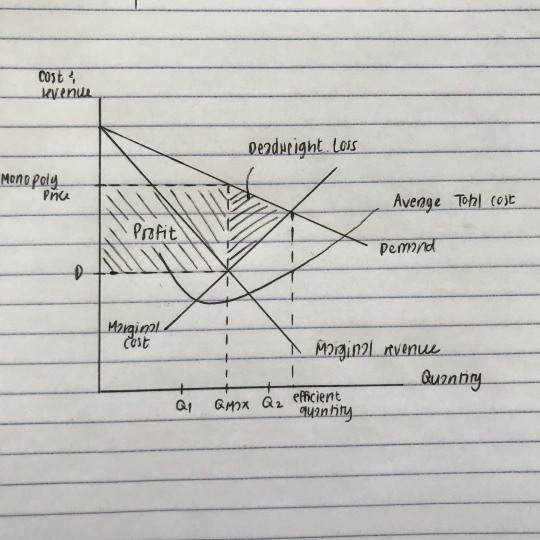 Cost &
revenue
Deadweight Loss
Monopoly
Price
Average Total cost
Profit
Demand
D
Marginal
cost
Marginal revenue
Quantity
Q1
QMax
Q2
efficient
quantity